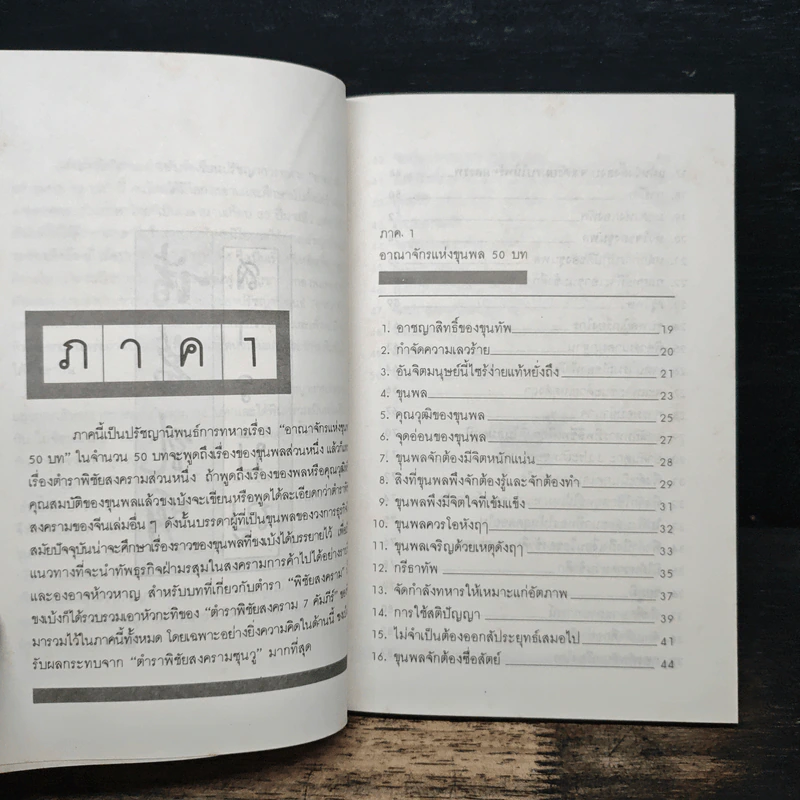 ภาค ๅ
ภาคนี้เป็นปรัชญานิพนธ์การทหารเรื่อง "อาณาจักรแห่งขุนพล
50 บท" ในจำนวน 50 บทจะพูดถึงเรื่องของขุนพลส่วนหนึ่ง
เรื่องตำราพิชัยสงครามส่วนหนึ่ง ถ้าพูดถึงเรื่องของพลหรือ
คุณสมบัติของขุนพลแล้วขงเบ้งจะเขียนหรือพูดได้ละเอียดกว่าตำรา
สงครามของจีนเล่มอื่น ๆ ดังนั้นบรรดาผู้ที่เป็นขุนพลของวงการ
สมัยปัจจุบันน่าจะศึกษาเรื่องราวของขุนพลที่ขงเบ้งได้บรรยายไว้
แนวทางที่จะนำทัพธุรกิจฝ่ามรสุมในสงครามการค้าไปได้
และองอาจห้าวหาญ สำหรับบทที่เกี่ยวกับตำรา "พิชัยสงคราม"
ขงเบ้งก็ได้รวบรวมเอาหัวกะทิของ "ตำราพิชัยสงคราม 7 คัมภีร์"
มารวมไว้ในภาคนี้ทั้งหมด โดยเฉพาะอย่างยิ่งความคิดในด้านนี้
รับผลกระทบจาก "ตำราพิชัยสงครามซุนวู" มากที่สุด
ภาค. 1
อาณาจักรแห่งขุนพล 50 บท
1. อาชญาสิทธิ์ของขุนทัพ 19
2. กำจัดความเลวร้าย 20
3. อันจิตมนุษย์นี้ไซร้ง่ายแท้หยั่งถึง 21
4. ขุนพล 23
5. คุณวุฒิของขุนพล 25
6. จุดอ่อนของขุนพล 27
7. ขุนพลจักต้องมีจิตหนักแน่น 28
8. สิ่งที่ขุนพลพึงจักต้องรู้และจักต้องทำ 29
9. ขุนพลพึงมีจิตใจที่เข้มแข็ง 31
10. ขุนพลควรโอหังฤๅ 32
11. ขุนพลเจริญด้วยเหตุดังฤๅ 33
12. กรีธาทัพ 35
13. จัดกำลังทหารให้เหมาะแก่อัตภาพ 37
14. การใช้สติปัญญา 39
15. ไม่จำเป็นต้องออกสัประยุทธ์เสมอไป 41
16. ขุนพลจักต้องซื่อสัตย์ 44